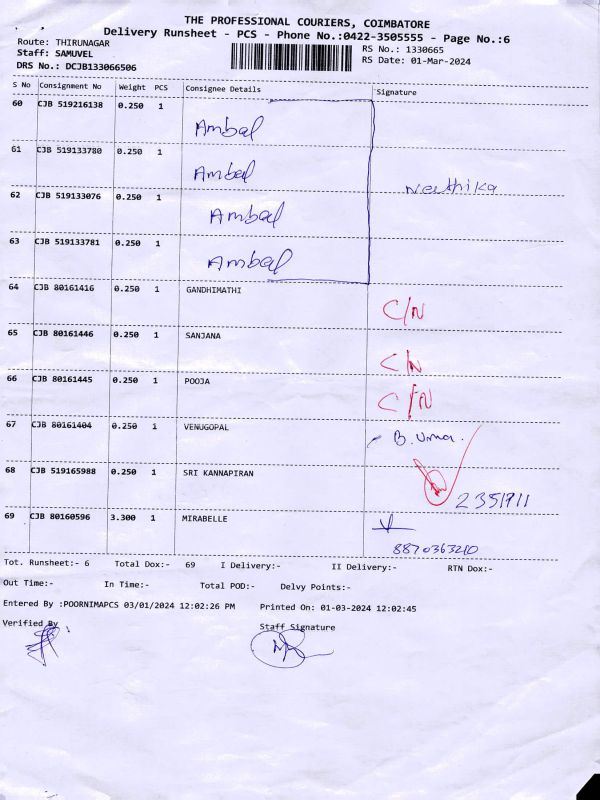 THE PROFESSIONAL COURIERS, COIMBATORE
Delivery Runsheet - PCS - Phone No.:0422-3505555 - Page No.:6
Route: THIRUNAGAR RS No.: 1330665
Staff: SAMUVEL RS Date: 01-Mar-2024
DRS No.: DCJB133066506
S No Consignment No Weight PCS Consignee Details Signature
60 CJB 519216138 0.250 1 Ambal
61 CJB 519133780 0.250 1 Ambal
62 CJB 519133076 0.250 1 Ambal
63 CJB 519133781 0.250 1 Ambal
64 CJB 80161416 0.250 1 GANDHIMATHI C/N
65 CJB 80161446 0.250 1 SANJANA C/N
66 CJB 80161445 0.250 1 POOJA C/N
67 CJB 80161404 0.250 1 VENUGOPAL B. Uma.
68 CJB 519165988 0.250 1 SRI KANNAPIRAN
69 CJB 80160596 3.300 1 MIRABELLE
8870363210
Tot. Runsheet:- 6 Total Dox:- 69 I Delivery:- II Delivery:- RTN Dox:-
Out Time:- In Time:- Total POD:- Delvy Points:-
Entered By :POORNIMAPCS 03/01/2024 12:02:26 PM Printed On: 01-03-2024 12:02:45
Verified By Staff Signature